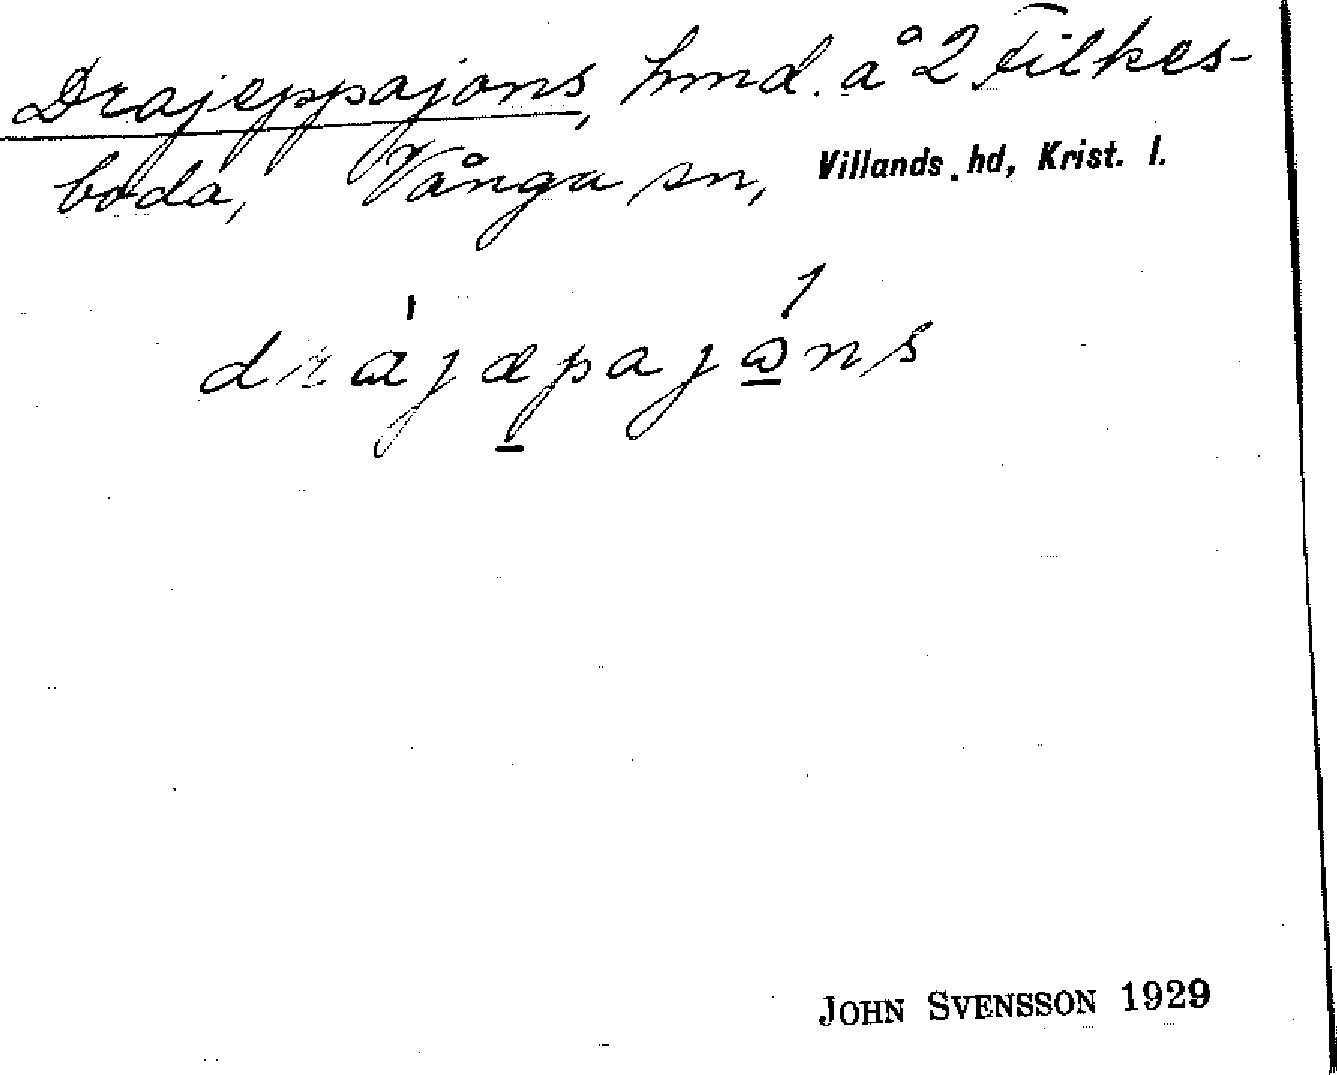 Drajeppajons, hmd. å 2 Filkes-
boda, Vånga sn, Villands hd, Krist. l.
drajæpajɷns
JOHN SVENSSON 1929